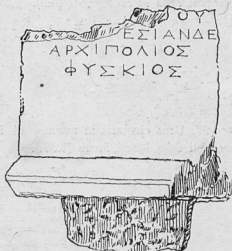 ΟΥ
ΕΣΙΑΝΔΕ
ΑΡΧΙΠΟΛΙΟΣ
ΦΥΣΚΙΟΣ